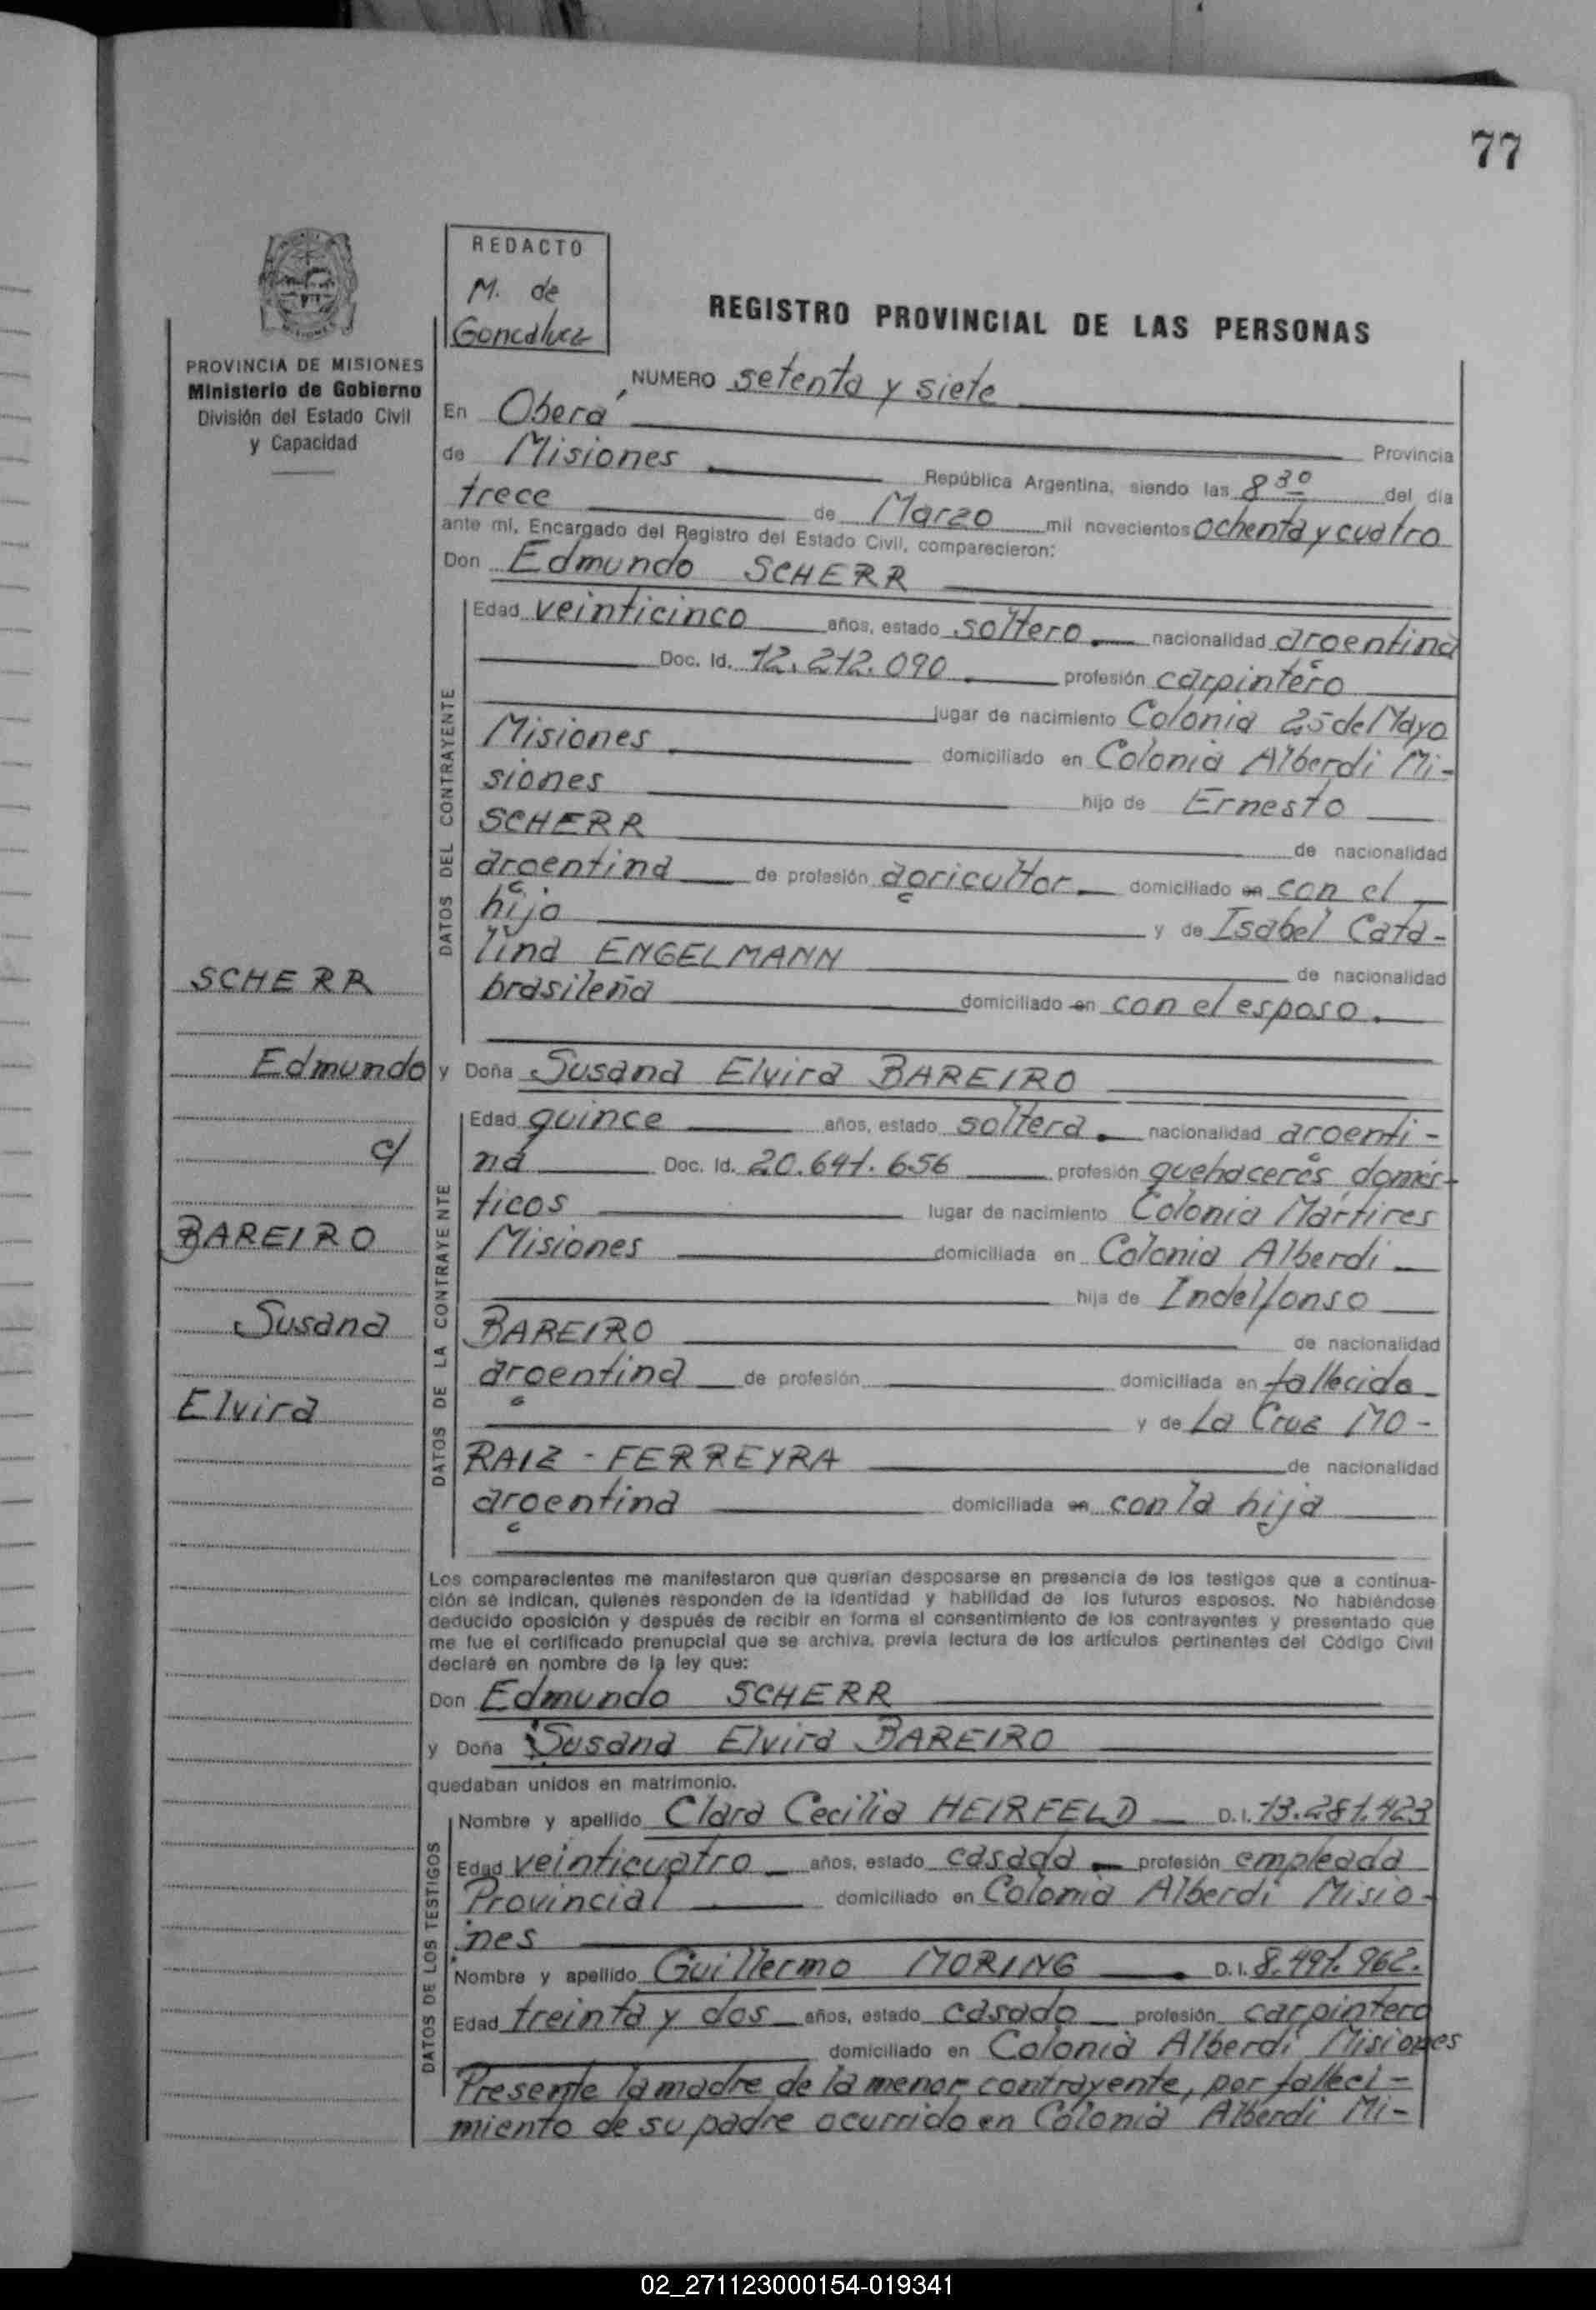 77
REDACTO
M. de
Goncalvez
REGISTRO PROVINCIAL DE LAS PERSONAS
PROVINCIA DE MISIONES
Ministerio de Gobierno
División del Estado Civil
y Capacidad
NUMERO setenta y siete
En Oberá Provincia
de Misiones República Argentina, siendo las 8 30 del día
trece de Marzo mil novecientos ochenta y cuatro
ante mí, Encargado del Registro del Estado Civil, comparecieron:
Don Edmundo SCHERR
DATOS DEL CONTRAYENTE
Edad veinticinco años, estado soltero nacionalidad argentina
Doc. Id. 12.212.090 profesión carpintero
lugar de nacimiento Colonia 25 de Mayo
Misiones domiciliado en Colonia Alberdi Mi-
siones hijo de Ernesto
SCHERR de nacionalidad
argentina de profesión agricultor domiciliado en con el
hijo y de Isabel Cata-
lina ENGELMANN de nacionalidad
brasileña domiciliado en con el esposo.
SCHERR
Edmundo
c/
BAREIRO
Susana
Elvira
y Doña Susana Elvira BAREIRO
DATOS DE LA CONTRAYENTE
Edad quince años, estado soltera nacionalidad argenti-
na Doc. Id. 20.641.656 profesión quehaceres domés-
ticos lugar de nacimiento Colonia Mártires
Misiones domiciliada en Colonia Alberdi
hija de Indelfonso
BAREIRO de nacionalidad
argentina de profesión domiciliada en fallecido
y de La Cruz MO-
RAIZ - FERREYRA de nacionalidad
argentina domiciliada en con la hija
Los comparecientes me manifestaron que querían desposarse en presencia de los testigos que a continua-
ción se indican, quienes responden de la identidad y habilidad de los futuros esposos. No habiéndose
deducido oposición y después de recibir en forma el consentimiento de los contrayentes y presentado que
me fue el certificado prenupcial que se archiva, previa lectura de los artículos pertinentes del Código Civil
declaré en nombre de la ley que:
Don Edmundo SCHERR
y Doña Susana Elvira BAREIRO
quedaban unidos en matrimonio.
DATOS DE LOS TESTIGOS
Nombre y apellido Clara Cecilia HEIRFELD D.I. 13.281.423
Edad veinticuatro años, estado casada profesión empleada
Provincial domiciliado en Colonia Alberdi Misio-
nes
Nombre y apellido Guillermo MORING D.I. 8.491.962.
Edad treinta y dos años, estado casado profesión carpintero
domiciliado en Colonia Alberdi Misiones
Presente la madre de la menor contrayente, por falleci-
miento de su padre ocurrido en Colonia Alberdi Mi-
02_271123000154-019341